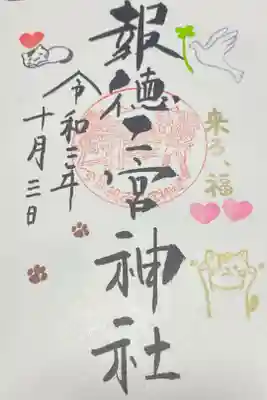 来る、福
報徳二宮神社
令和三年
十月三日